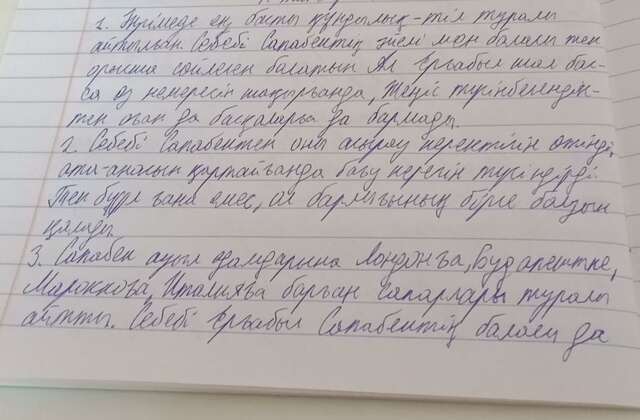 1. Әңгімеде ең басты құндылық - тіл туралы
айтылған. Себебі Сапабектің әйелі мен баласы тек
орысша сөйлеген болатын. Ал Ерғабыл шал бас-
са өз немересін шақырғанда, Теңіз түсінбегендік-
тен оған да басқаларға да бармады.
2. Себебі Сапабектен оны асырау керектігін өтінді,
ата-анасын қартайғанда бағу керегін түсіндірді
Тек бұл ғана емес, ал барлығының бірге болуын
қалады
3. Сапабек ауыл адамдарына Лондонға, Будапештке,
Мароккоға, Италияға барған сапарлары туралы
айтты. Себебі Ерғабыл Сапабектің баласы да